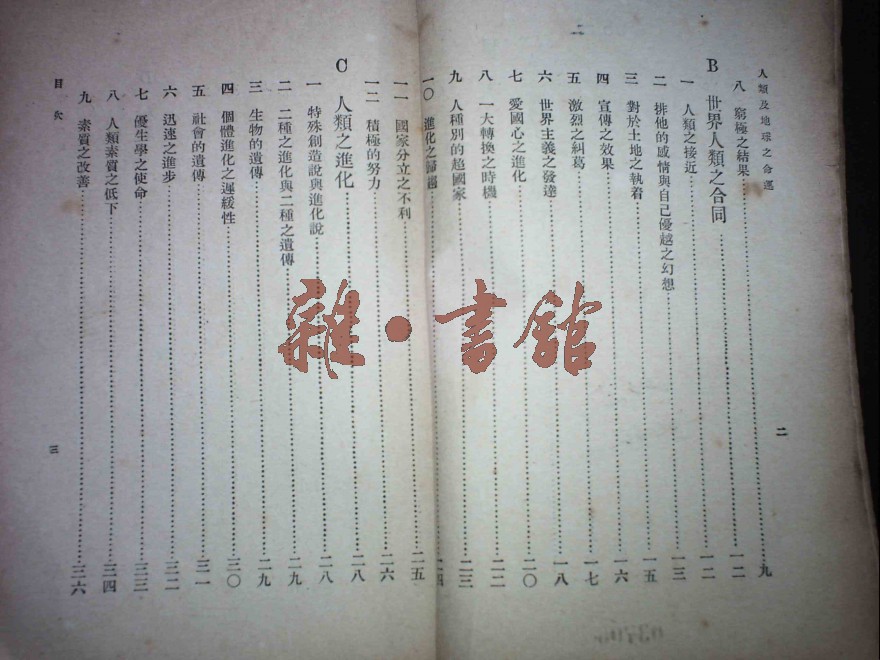 人類及地球之命運
八 窮極之結果 一二
B 世界人類之合同 一二
一 人類之接近 一三
二 排他的感情與自己優越之幻想
三 對於土地之執着 一五
四 宣傳之效果 一六
五 激烈之糾葛 一七
六 世界主義之發達 一八
七 愛國心之進化 二〇
八 一大轉換之時機 二二
九 人種別的超國家 二三
一〇 進化之歸趨
一一 國家分立之不利 二五
一二 積極的努力 二六
C 人類之進化 二八
一 特殊創造說與進化說 二八
二 二種之進化與二種之遺傳 二九
三 生物的遺傳 二九
四 個體進化之遲緩性 三〇
五 社會的遺傳 三一
六 迅速之進步 三二
七 優生學之使命 三三
八 人類素質之低下 三四
九 素質之改善 三六
目次
二
三
雜·書館